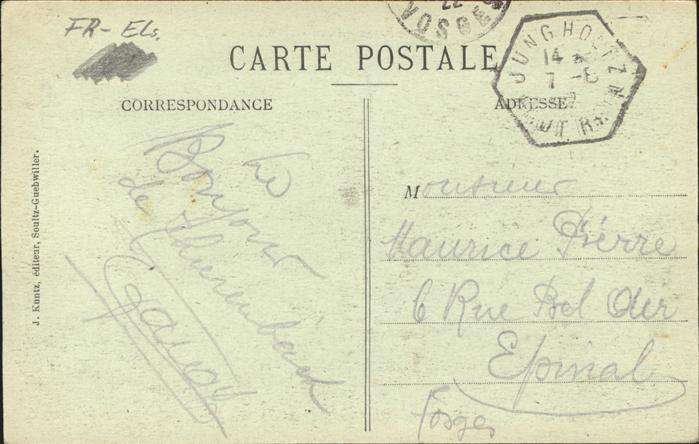 FR-Els.
VOSGES
22
CARTE POSTALE
JUNGHOLTZ
14
7 - 8
HAUT RHIN
CORRESPONDANCE
ADRESSE
Bonjour
de Thierenbach
Monsieur
Maurice Pierre
6 Rue Bel Air
Epinal
Vosges
J. Kuntz, éditeur, Soultz-Guebwiller.